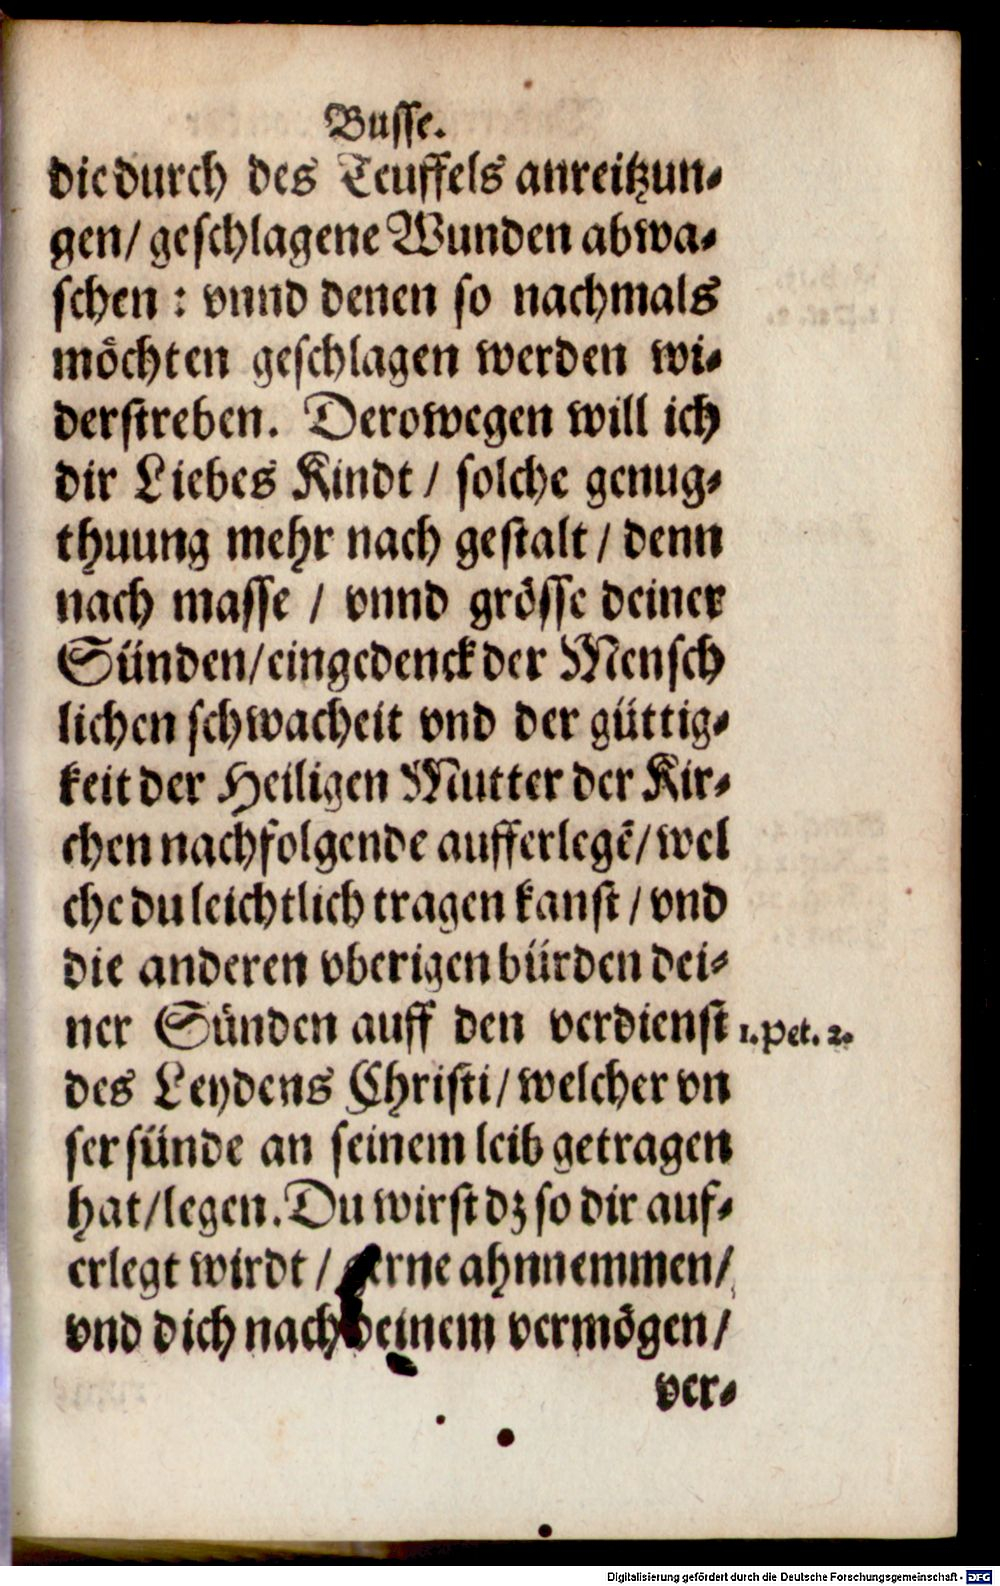 Busse.
die durch des Teuffels anreitzun-
gen/ geschlagene Wunden abwa-
schen : vnnd denen so nachmals
möchten geschlagen werden wi-
derstreben. Derowegen will ich
dir Liebes Kindt / solche genug-
thuung mehr nach gestalt / denn
nach masse / vnnd grösse deiner
Sünden/eingedenck der Mensch
lichen schwacheit vnd der güttig-
keit der Heiligen Mutter der Kir-
chen nachfolgende aufferlegē/wel
che du leichtlich tragen kanst / vnd
die anderen vberigen bürden dei-
ner Sünden auff den verdienst 1. Pet. 2.
des Leydens Christi/ welcher vn
ser sünde an seinem leib getragen
hat/legen. Du wirst dz so dir auf-
erlegt wirdt / gerne ahnnemmen/
vnd dich nach deinem vermögen/
ver-
Digitalisierung gefördert durch die Deutsche Forschungsgemeinschaft - DFG